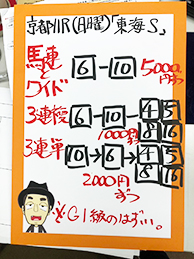 京都11R(日曜)「東海S」
馬連とワイド 6-10 5000円ずつ
3連複 6-10-4 5 8 16 1000円ずつ
3連単 10→6→4 5 8 16
2000円ずつ
※G1級のはず…。